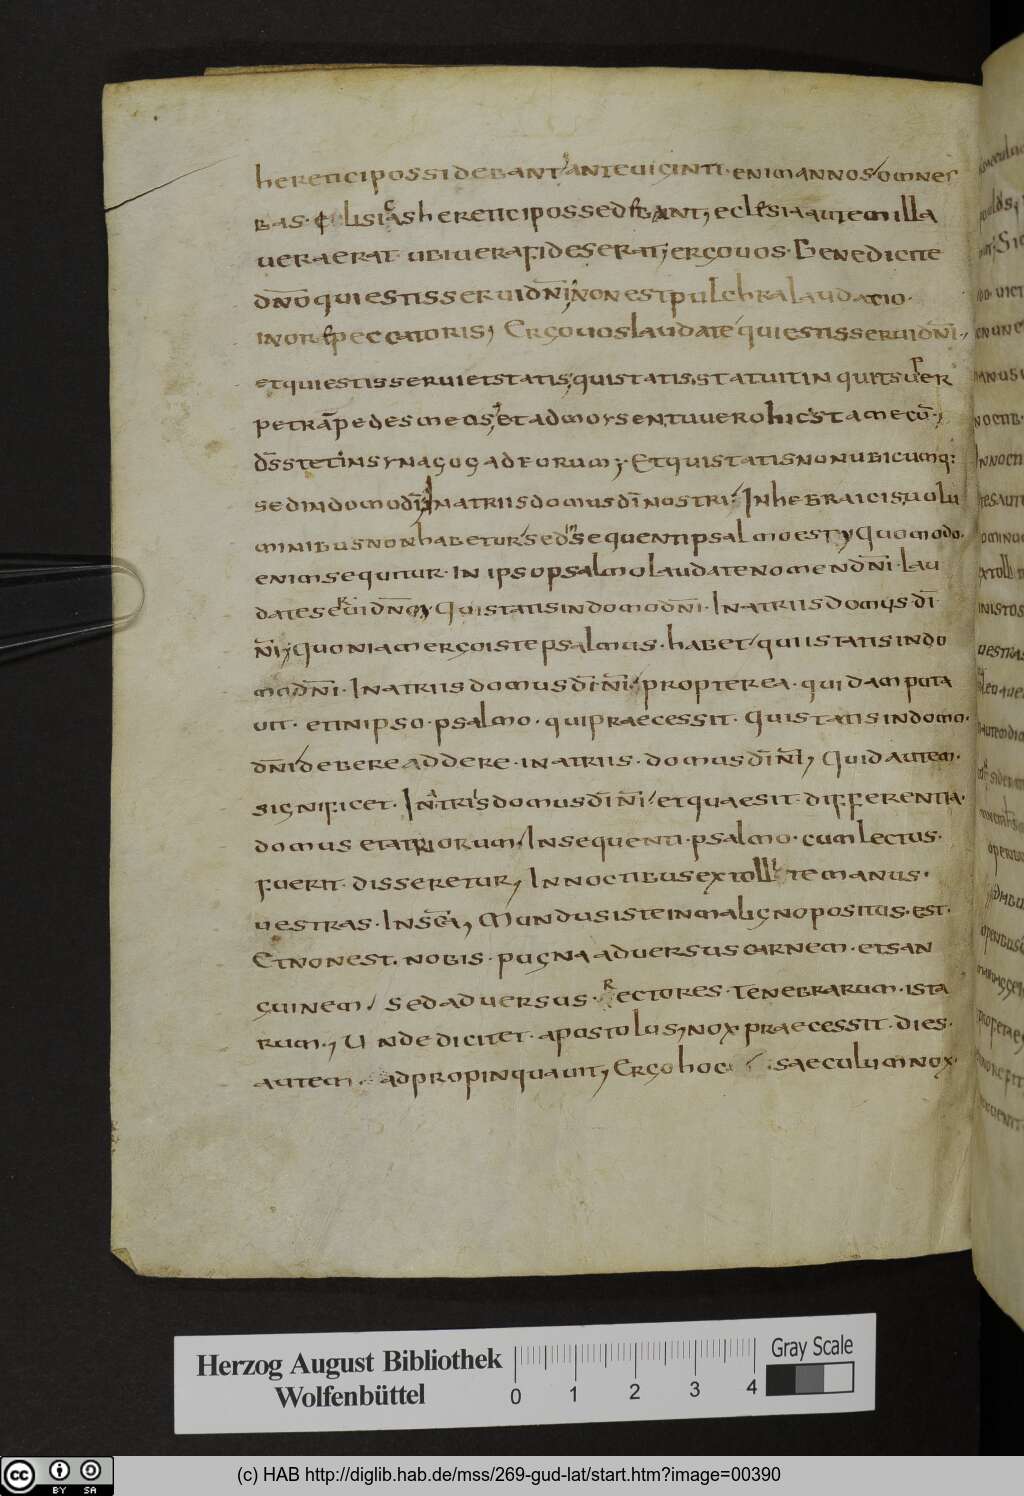 heretici possidebant ante uiginti · enim annos omnes
bas · eclisias heretici possedebant; eclesia autem illa
uera erat ubi uera fides erat; ergo uos · Benedicite
dn̄o qui estis serui dn̄i; non est pulchra laudatio ·
in ore peccatoris; Ergo uos laudate qui estis serui dn̄i ·,
et qui estis serui et statis; qui statis, statuit in
petrā pedes meos; et ad moysen, tu uero hic sta mecū ·;
d̄s stetit in synagoga deorum; · Et qui statis non ubicumq:
sed in domo dī In atriis domus dī nostri · In hebraicis, uolu
minibus non habetur sed in sequenti psalmo est; Quomodo ·
enim sequitur · in ipso psalmo laudate nomen dn̄i · lau
date serui dn̄m; Qui statis in domo dn̄i · In atriis domus dī ·
n̄i; Quoniam ergo iste psalmus · habet qui istatis in do
mo dn̄i · In atriis domus dī n̄i · propterea · quidam puta
uit · et in ipso · psalmo · qui praecessit · Qui statis in domo ·
dn̄i debere addere · in atriis · domus dī n̄i; Quid autem ·
significet · In atriis domus dī n̄i · et quae sit · differentia ·
domus et atriorum, In sequenti · psalmo · cum lectus ·
fuerit · disseretur; In noctibus extollite manus ·
uestras · In scā; Mundus iste in maligno positus · est ·
Et non est · nobis · pugna aduersus carnem · et san
guinem / sed aduersus · rectores · tenebrarum · ista
rum ·; Unde dicit et · apostolus; nox praecessit · dies ·
autem · adpropinquauit; Ergo hoc · saeculum nox ·
Herzog August Bibliothek
Wolfenbüttel
0 1 2 3 4
Gray Scale
cc BY SA
(c) HAB http://diglib.hab.de/mss/269-gud-lat/start.htm?image=00390